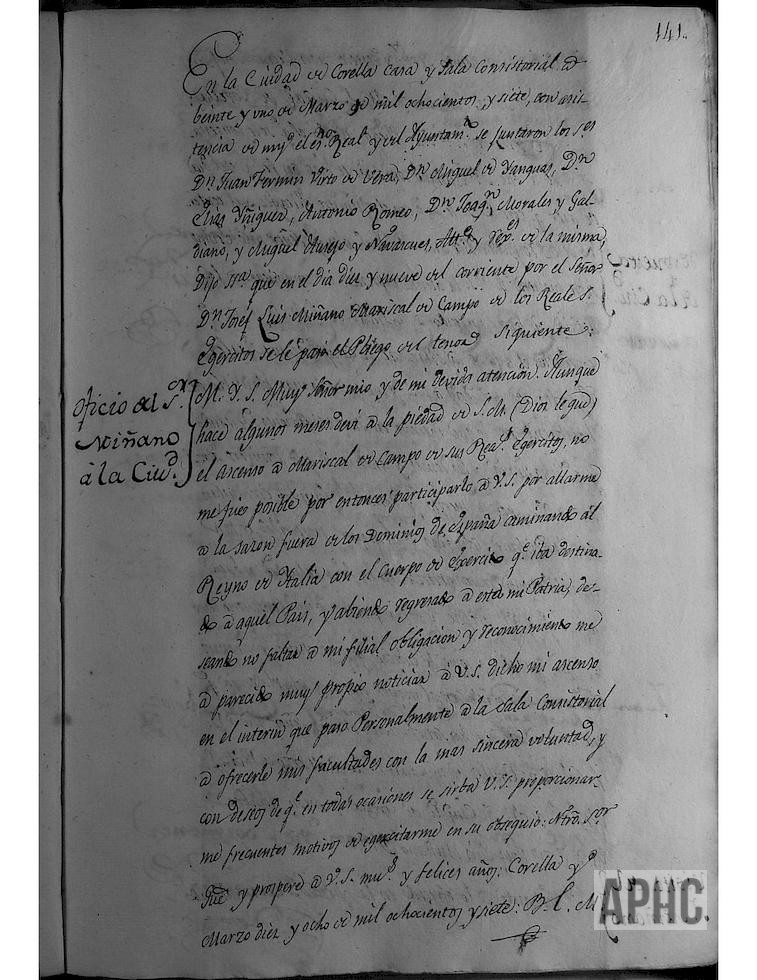 141.
En la Ciudad de Corella Casa y Sala Consistorial a
beinte y uno de Marzo de mil ochocientos y siete, con asis-
tencia de mi el esno. Real y del Ayuntamto. se juntaron los Ses
Dn. Juan Fermin Virto de Vera, Dn. Miguel de Yanguas, Dn.
Elias Yñiguez, Antonio Romeo, Dn. Joaqn. Morales y Gal-
diano, y Miguel Asesio y Navascues, Alles. y Rexes. de la misma,
Dijo Sria. que en el dia diez y nueve del corriente por el Señor
Dn. Josef Luis Miñano Mariscal de Campo de los Reales
Egercitos se le paso el Pliego del tenor siguiente:
Oficio del Sr.
Miñano
á la Ciud.
M. Y. S. Muy Señor mio y de mi devida atencion. Aunque
hace algunos meses deví a la piedad de S. M. (Dios le gue)
el Ascenso a Mariscal de Campo de sus Reas. Egercitos, no
me fue posible por entonces participarlo a V.S. por allarme
a la sazon fuera de los Dominios de España caminando al
Reyno de Italia con el Cuerpo de Exercito qe. iba destina-
do a aquel Pais, y abiendo regresado a esta mi Patria, de-
seando no faltar a mi filial obligacion y reconocimiento me
a parecido muy propio noticiar á V.S. dicho mi ascenso
en el interin que paso Personalmente a la Sala Consistorial
a ofrecerle mis facultades con la mas sincera voluntad, y
con deseos de qe. en todas ocasiones se sirba V.S. proporcionar-
me frecuentes motivos de egercitarme en su obsequio: Ntro. Sor
gue y prospere a V.S. mus. y felices años: Corella y
Marzo diez y ocho de mil ochocientos y siete: B. L. M.
APHC